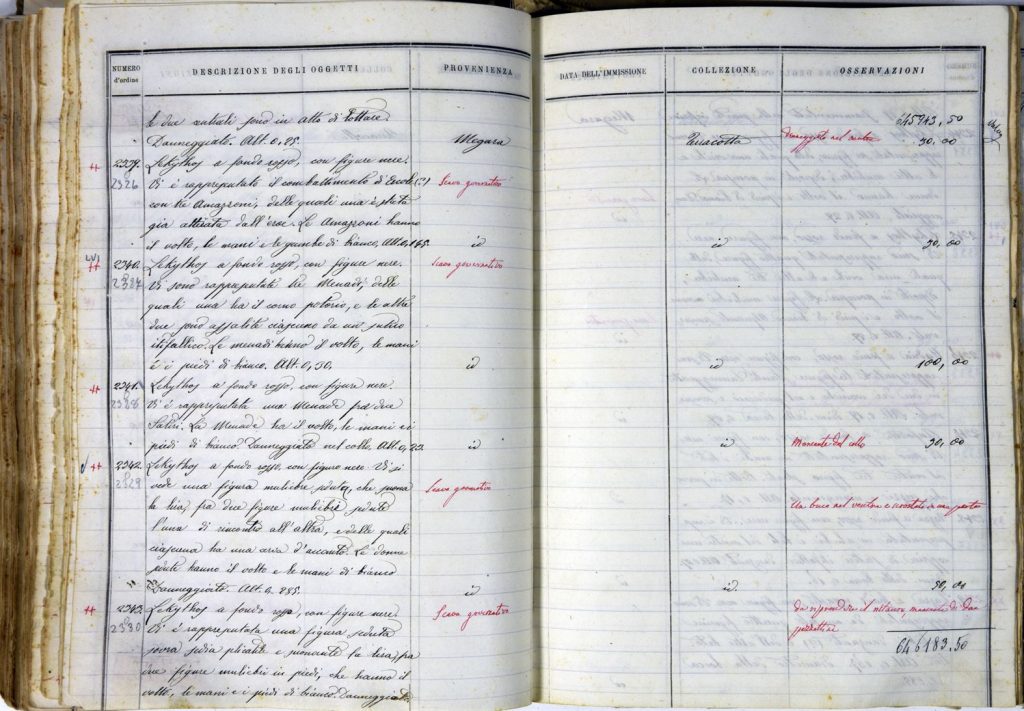 NUMERO d'ordine
DESCRIZIONE DEGLI OGGETTI
PROVENIENZA
DATA DELL'IMMISSIONE
COLLEZIONE
OSSERVAZIONI
645943,50
le due entrali sono in atto di lottare
Danneggiato. Alt. 0,25. Megara Terracotta Danneggiato nel 30,00
Lekythos a fondo rosso, con figure nere.
2326 Vi è rappresentato il combattimento di Ercole (?) Scavo governativo
con tre Amazzoni, delle quali una è
gia atterrata dall'eroe. Le Amazzoni hanno
il volto, le mani e le gambe di bianco. Alt. 0,165. id id 30,00
2340. Lekythos a fondo rosso, con figure nere. Scavo governativo
2327 Vi sono rappresentate tre Menadi, delle
quali una ha il corno potorio, e le altre
due sono assalite ciascuno da un
itifallico. Le menadi hanno il volto, le mani
e i piedi di bianco. Alt. 0,30. id id 100,00
2341. Lekythos a fondo rosso, con figure nere.
2328 Vi è rappresentata una Menade fra due
Satiri. La Menade ha il volto, le mani e i
piedi di bianco. Danneggiato nel collo. Alt. 0,23. id id Mancante del collo 30,00
2342. Lekythos a fondo rosso, con figure nere. Vi si
2329 vede una figura muliebre seduta, che suona Scavo governativo
la lira, fra due figure muliebri sedute Un buco nel ventre e scrostata in una parte
l'una di rincontro all'altra, e delle quali
ciascuna ha una aria d'accanto. Le donne
sedute hanno il volto e le mani di bianco
Danneggiato. Alt. 0,285. id id 50,00
2343. Lekythos a fondo rosso, con figure nere Scavo governativo da il mancante di due
2330 Vi è rappresentata una figura seduta
sovra sedia plicatile e suonante la lira, fra 646183.50
due figure muliebri in piedi, che hanno il
volto, le mani e i piedi di bianco. Danneggiato